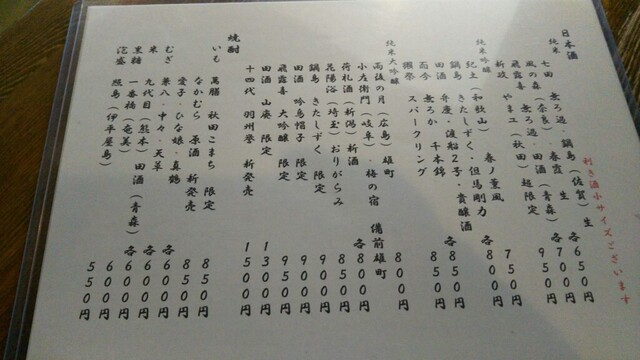 利き酒小サイズございます
日本酒
純米
七田 無ろ過・鍋島(佐賀)生 各650円
風の森(奈良)・春霞 生 各700円
飛露喜 無ろ過・田酒(青森) 950円
新政 やまユ(秋田)超限定 750円
純米吟醸
春ノ薫風 各800円
紀土(和歌山)
鍋島 きたしずく・但馬剛力 各850円
田酒 弁慶・渡船2号・貴醸酒 850円
而今 無ろか 千本錦
獺祭 スパークリング 800円
純米大吟醸
雨後の月(広島)雄町 備前雄町
小左衛門(岐阜)・梅の宿 各800円
荷札酒(新潟)新酒 850円
昆陽浴(埼玉)おりがらみ 900円
鍋島 きたしずく 限定 900円
田酒 吟烏帽子 限定 950円
飛露喜 大吟醸 限定 1300円
田酒 山廃 限定 1500円
十四代 羽州誉 新発売
焼酎
いも
萬膳 秋田こまち 限定 850円
なかむら 原酒 新発売 850円
愛子・ひな娘・真鶴 各600円
むぎ
兼八・中々・天草 各600円
米
九代目(熊本)田酒(青森) 各600円
黒糖
一番橋(奄美) 600円
泡盛
照島(伊平屋島) 550円